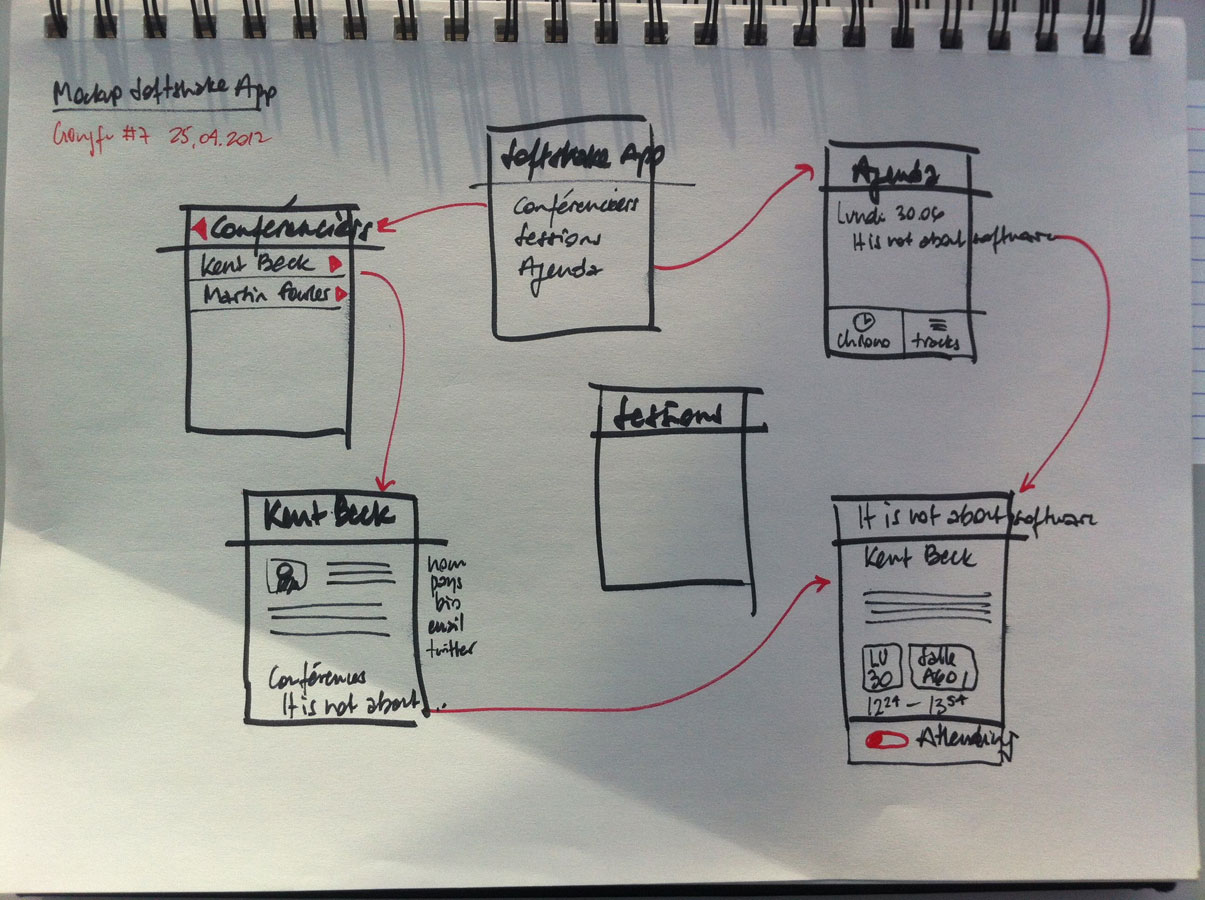 Mockup Softshake App
#7 25.04.2012
Softshake App
Conférenciers
Sessions
Agenda
Conférenciers
Kent Beck
Martin Fowler
Agenda
Lundi 30.06
It is not about software
chrono
tracks
Sessions
Kent Beck
nom
pays
bio
email
twitter
Conférences
It is not about ...
It is not about software
Kent Beck
LU
30
Salle
A601
12 24 – 13 54
Attending